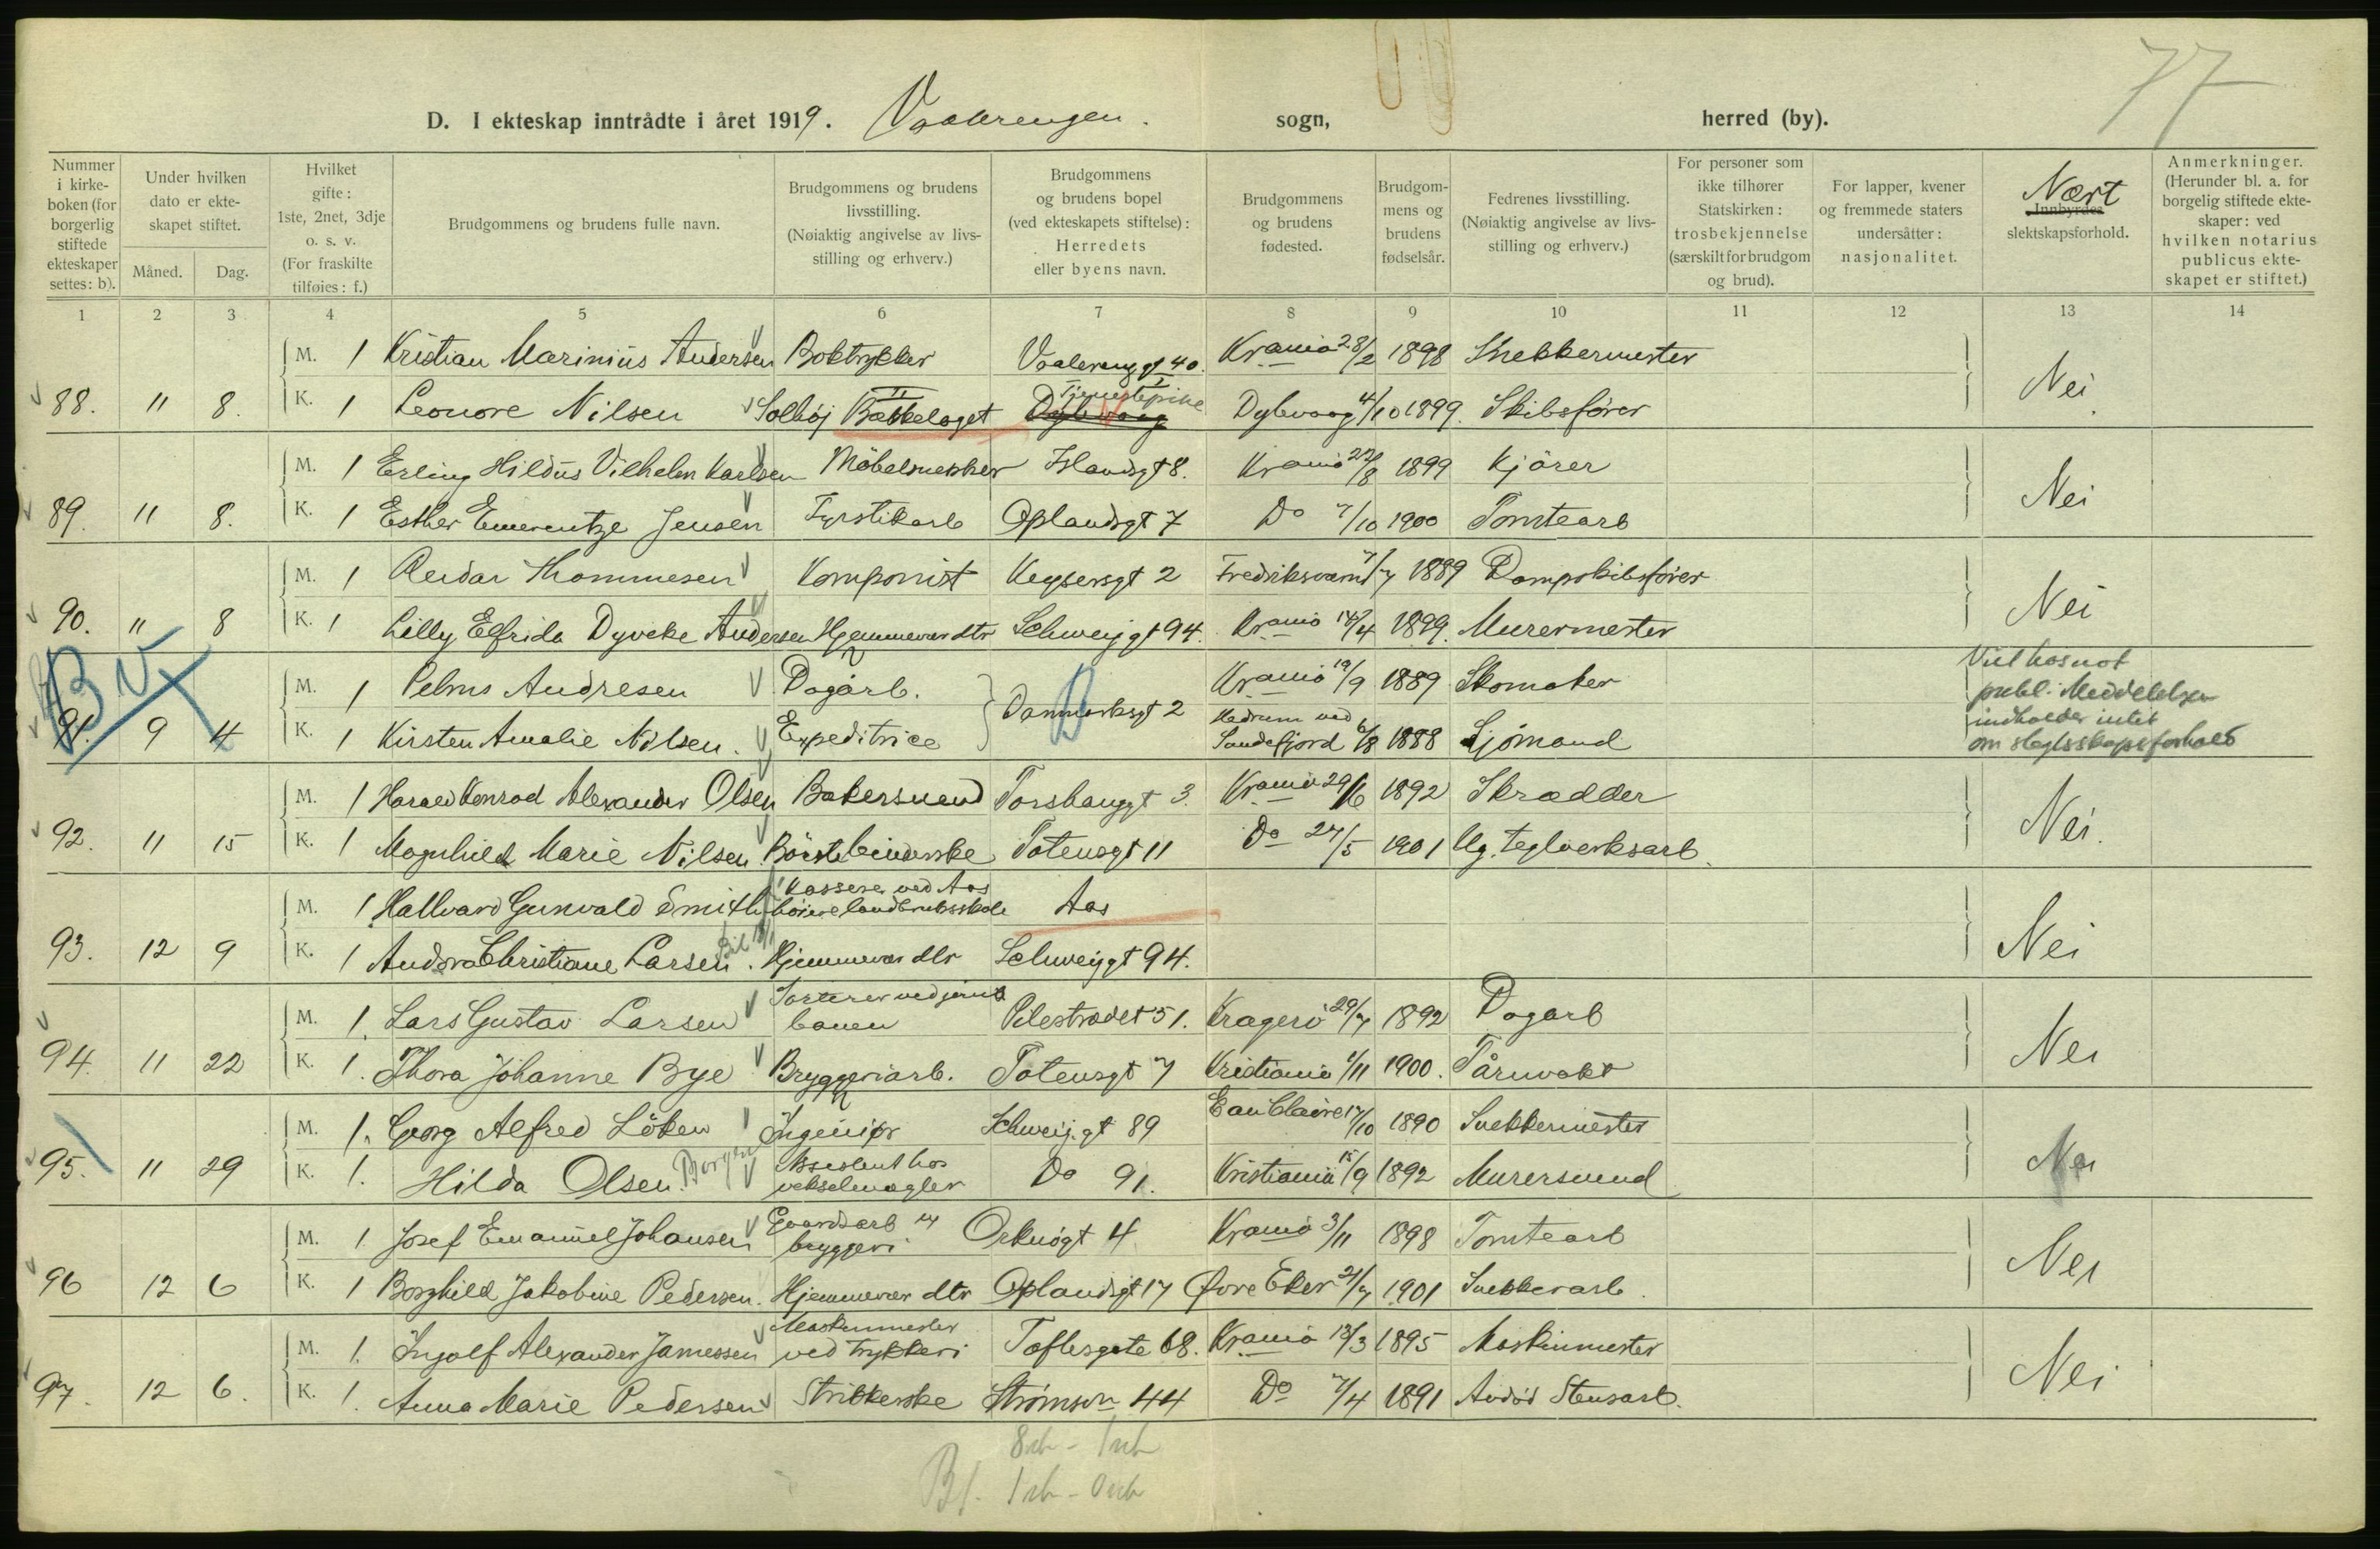 77
D. I ekteskap inntrådte i året 1919. Vaalerengen. sogn, herred (by).
Nummer i kirkeboken (for borgerlig stiftede ekteskaper settes: b).
Under hvilken dato er ekteskapet stiftet.
Måned. Dag.
Hvilket gifte: 1ste, 2net, 3dje o. s. v. (For fraskilte tilføies: f.)
Brudgommens og brudens fulle navn.
Brudgommens og brudens livsstilling. (Nøiaktig angivelse av livsstilling og erhverv.)
Brudgommens og brudens bopel (ved ekteskapets stiftelse): Herredets eller byens navn.
Brudgommens og brudens fødested.
Brudgommens og brudens fødselsår.
Fedrenes livsstilling. (Nøiaktig angivelse av livsstilling og erhverv.)
For personer som ikke tilhører Statskirken: trosbekjennelse (særskilt for brudgom og brud).
For lapper, kvener og fremmede staters undersåtter: nasjonalitet.
Nært Innbyrdes slektskapsforhold.
Anmerkninger. (Herunder bl. a. for borgelig stiftede ekteskaper: ved hvilken notarius publicus ekteskapet er stiftet.)
1 2 3 4 5 6 7 8 9 10 11 12 13 14
M. 1 Kristian Marinius Andersen Boktrykker Vaalerenggt 40. Krania 28/2 1898 Snekkermester
88. 11 8. K. 1 Leonore Nilsen Solhöj Bækkelaget Tjenestepike Dybvaag Dybvaag 4/10 1899. Skibsfører Nei
M. 1 Erling Hildus Vilhelm Karlsen Möbelsnekker Islandsgt 8. Krania 27/8 1899 Kjörer
89. 11 8. K. 1 Esther Emerentze Jensen Fyrstikarb Oplandsgt 7 Do 7/10 1900 Tomtearb Nei
M. 1 Reidar Thommesen Komponist Keysersgt 2 Fredriksværn 7/7 1889 Dampskibsfører
90. 11 8 K. 1 Lilly Elfrida Dyveke Andersen Hjemmevær dtr Schweigt 94. Krania 14/4 1899. Murermester Nei
M. 1 Pelms Andresen Dagarb. Krania 19/9 1889 Skomaker
91. 9 4 K. 1 Kirsten Amalie Nilsen. Expeditrice Danmarksgt 2 Hedrum ved Sandefjord 6/8 1888 Sjömand
Viet hos not publ. Meddelelsen indholder intet om slegtsskapsforhold
M. 1 Harald Konrad Alexander Olsen Bakersvend Torshauggt 3. Krania 29/6 1892 Skrædder
92. 11 15 K. 1 Magnhild Marie Nilsen Börstebinderske Totensgt 11 Do 27/5 1901 Ug. teglverksarb. Nei.
M. 1 Hallvard Gunvald Smith Kasserer ved Aas höiere landbruksskole Aas
93. 12 9 K. 1 Andora Christiane Larsen. Hjemmevær dtr Schweigt 94. Nei
M. 1. Lars Gustav Larsen Sorterer ved jernbanen Pilestrædet 51. Kragerö 29/7 1892 Dagarb
94. 11 22 K. 1. Thora Johanne Bye Bryggeriarb. Totensgt 7 Kristiania 1/11 1900. Tårnvakt Nei
M. 1. Georg Alfred Löken Ingeniör Schweig.gt 89 Eau Claire 17/10 1890 Snekkermester
95. 11 29 K. 1. Hilda Olsen. Assistent hos vekselmægler Do 91. Kristiania 15/9 1892 Murersvend Nei
M. 1 Josef Emanuel Johansen Gaardsarb bryggeri Orknögt 4 Krania 3/11 1898 Tomtearb
96 12 6 K. 1 Borghild Jakobine Pedersen. Hjemmevær dtr Oplandsgt 17 Øvre Eker 21/7 1901 Snekkerarb. Nei
M. 1. Ingolf Alexander Jamessen Maskinmester ved trykkeri Toftesgate 68. Krania 13/3 1895 Maskinmester
97. 12 6. K. 1. Anna Marie Pedersen Strikkerske Strømsvn 44 Do 7/4 1891 Avdöd Stensarb. Nei